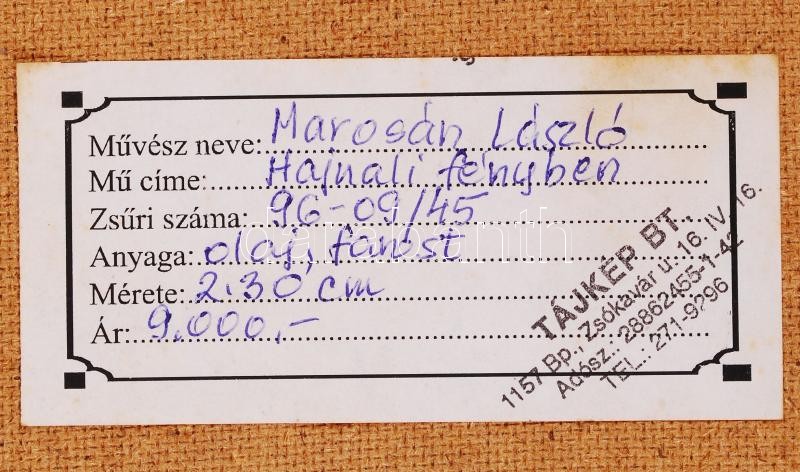 Művész neve: Marosán László
Mű címe: Hajnali fényben
Zsűri száma: 96-09/45
Anyaga: olaj, farost
Mérete: 2.30 cm
Ár: 9.000,-
TÁJKÉP BT.
1157 Bp., Zsókavár u. 16. IV. 16.
Adósz.: 28862455-1-42
TEL.: 271-9296
darabanth